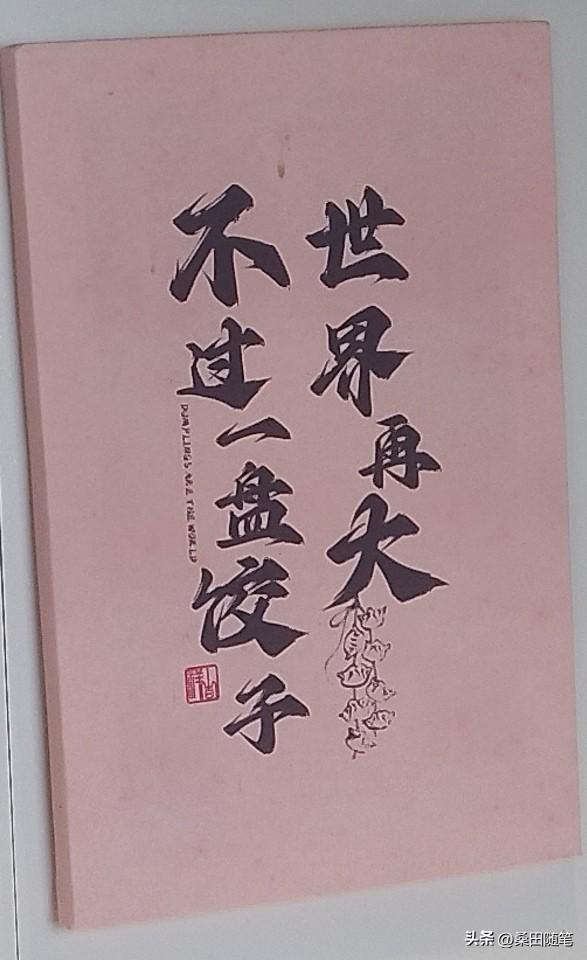 世界再大
不过一盘饺子
DUMPLINGS ARE THE WORLD
吉祥
头条 @桑田随笔